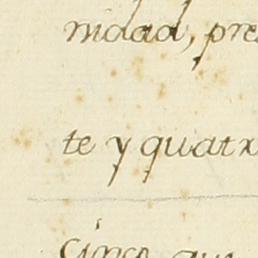 nidad, pre
te y quatr
cinco que